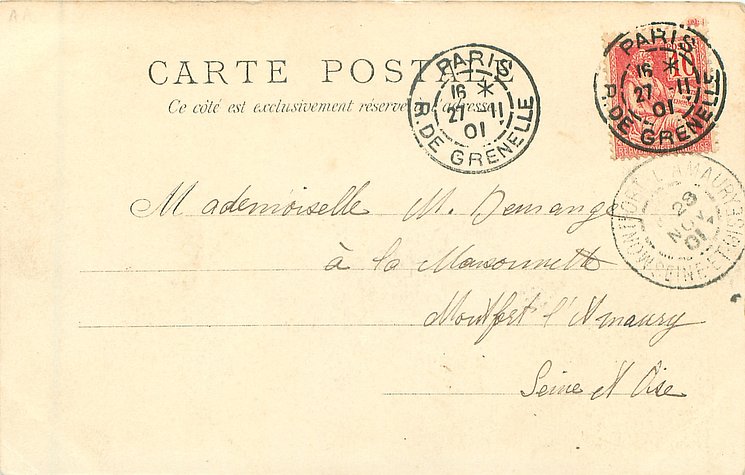 CARTE POSTALE
Ce côté est exclusivement réservé à l'adresse
PARIS
16 *
27 - 11
01
R. DE GRENELLE
PARIS
16 *
27 - 11
01
R. DE GRENELLE
10
MONTFORT L'AMAURY
28
NOV.
01
SEINE ET OISE
Mademoiselle M. Demange
à la Maisonnette
Montfort l'Amaury
Seine et Oise